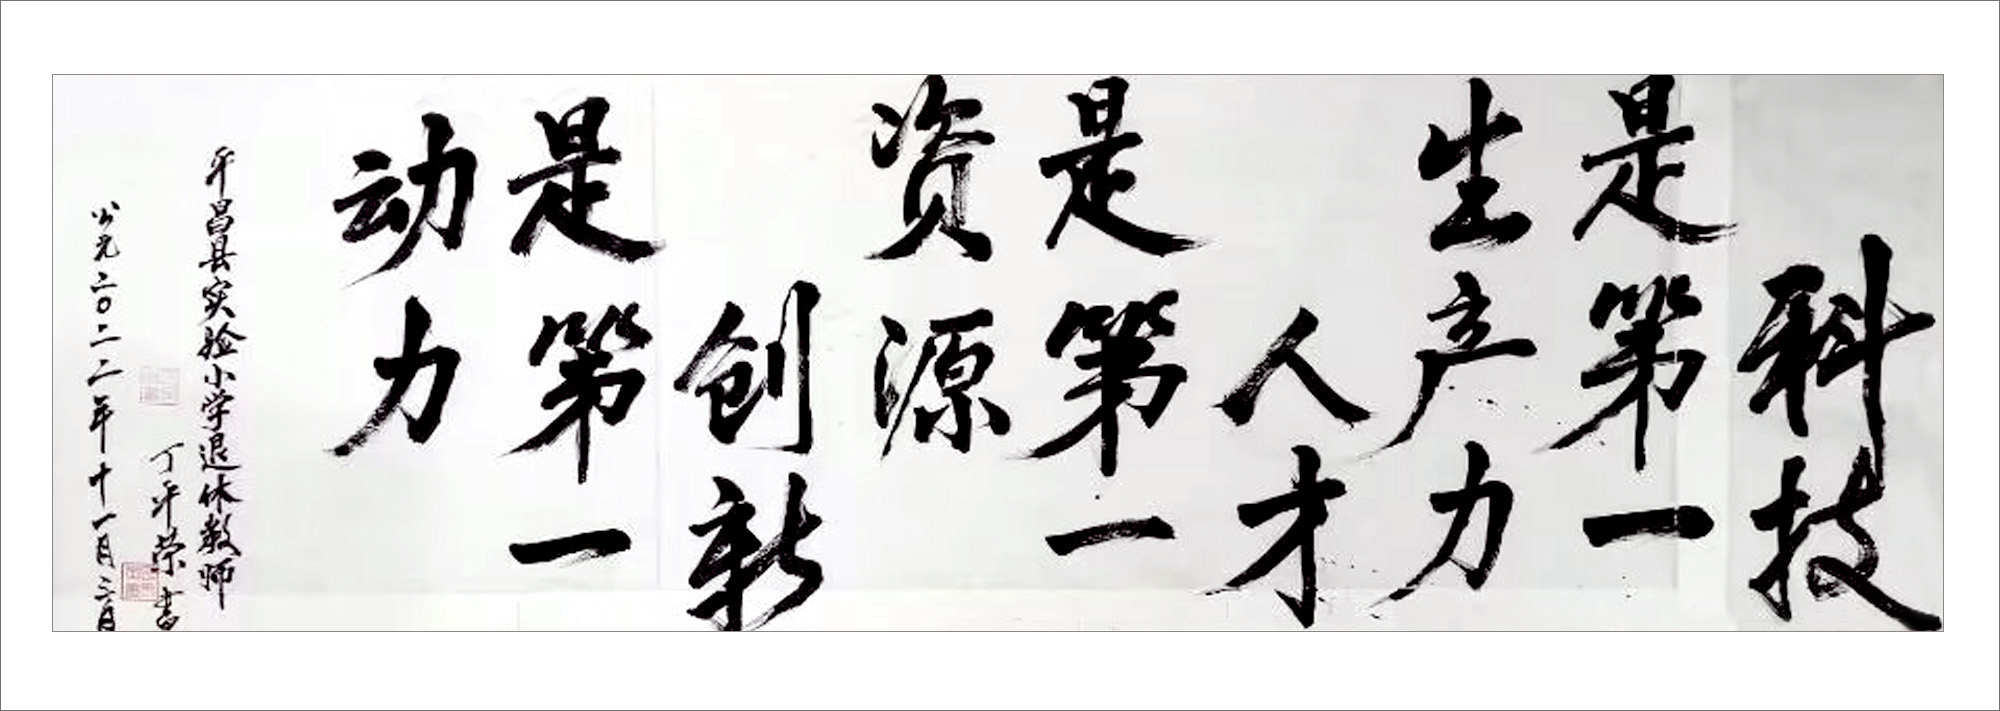 科技
是第一
生产力
人才
是第一
资源
创新
是第一
动力
平昌县实验小学退休教师
丁平荣书
公元二〇二二年十一月三日